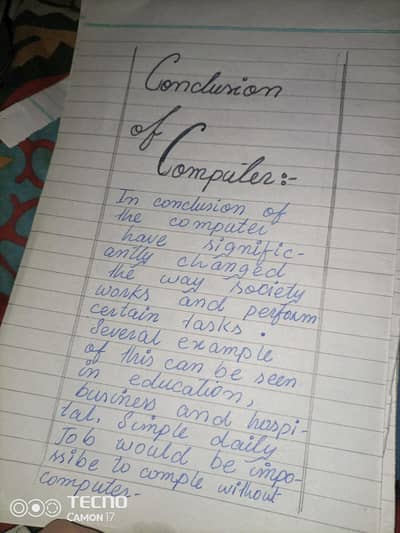 Conclusion
of
Computer:-
In conclusion of
the computer
have signific-
antly changed
the way society
works and perform
certain tasks.
Several example
of this can be seen
in education,
business and hospi-
tal. Simple daily
Job would be impo-
ssibe to comple without
computer-
TECNO
CAMON 17